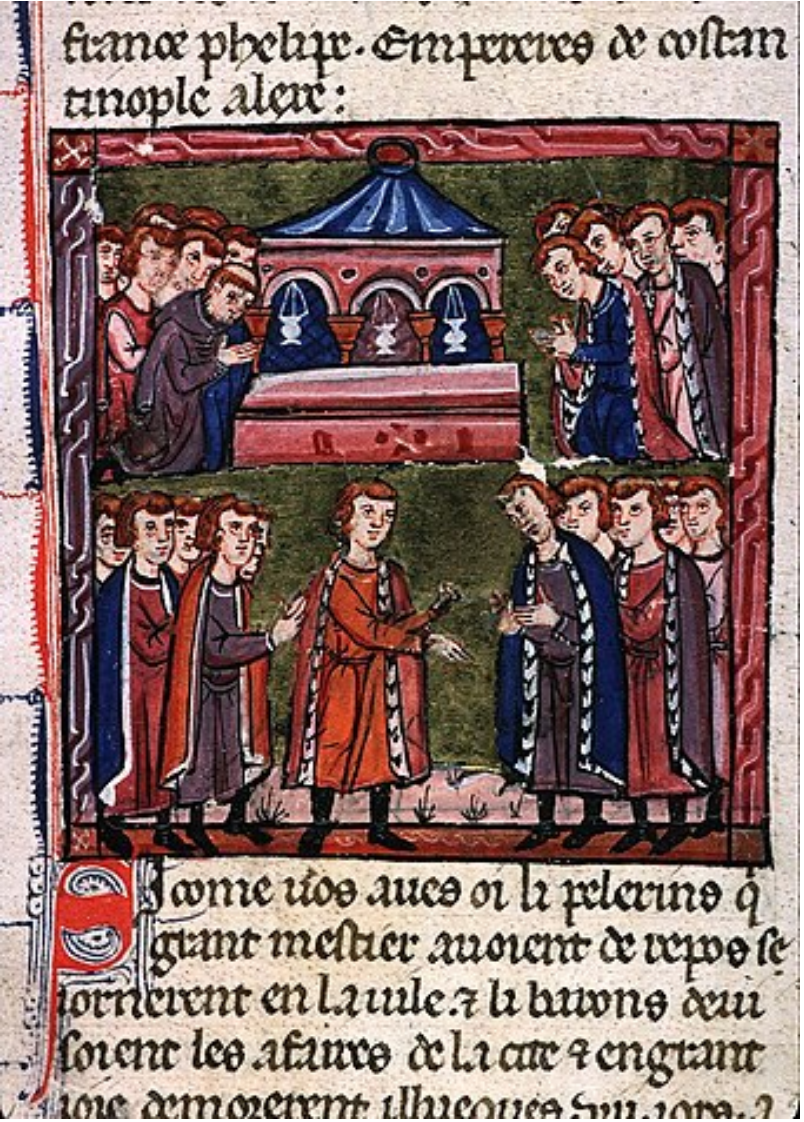 france phelipe. Empereres de costan
tinople alexe :
Si come uos aues oi li pelerins q̃
grant mestier auoient de repos se
iornerent en la uile. ⁊ li barons deui
soient les afaires de la cite ⁊ en grant
ioie demorerent illueques iors. ⁊